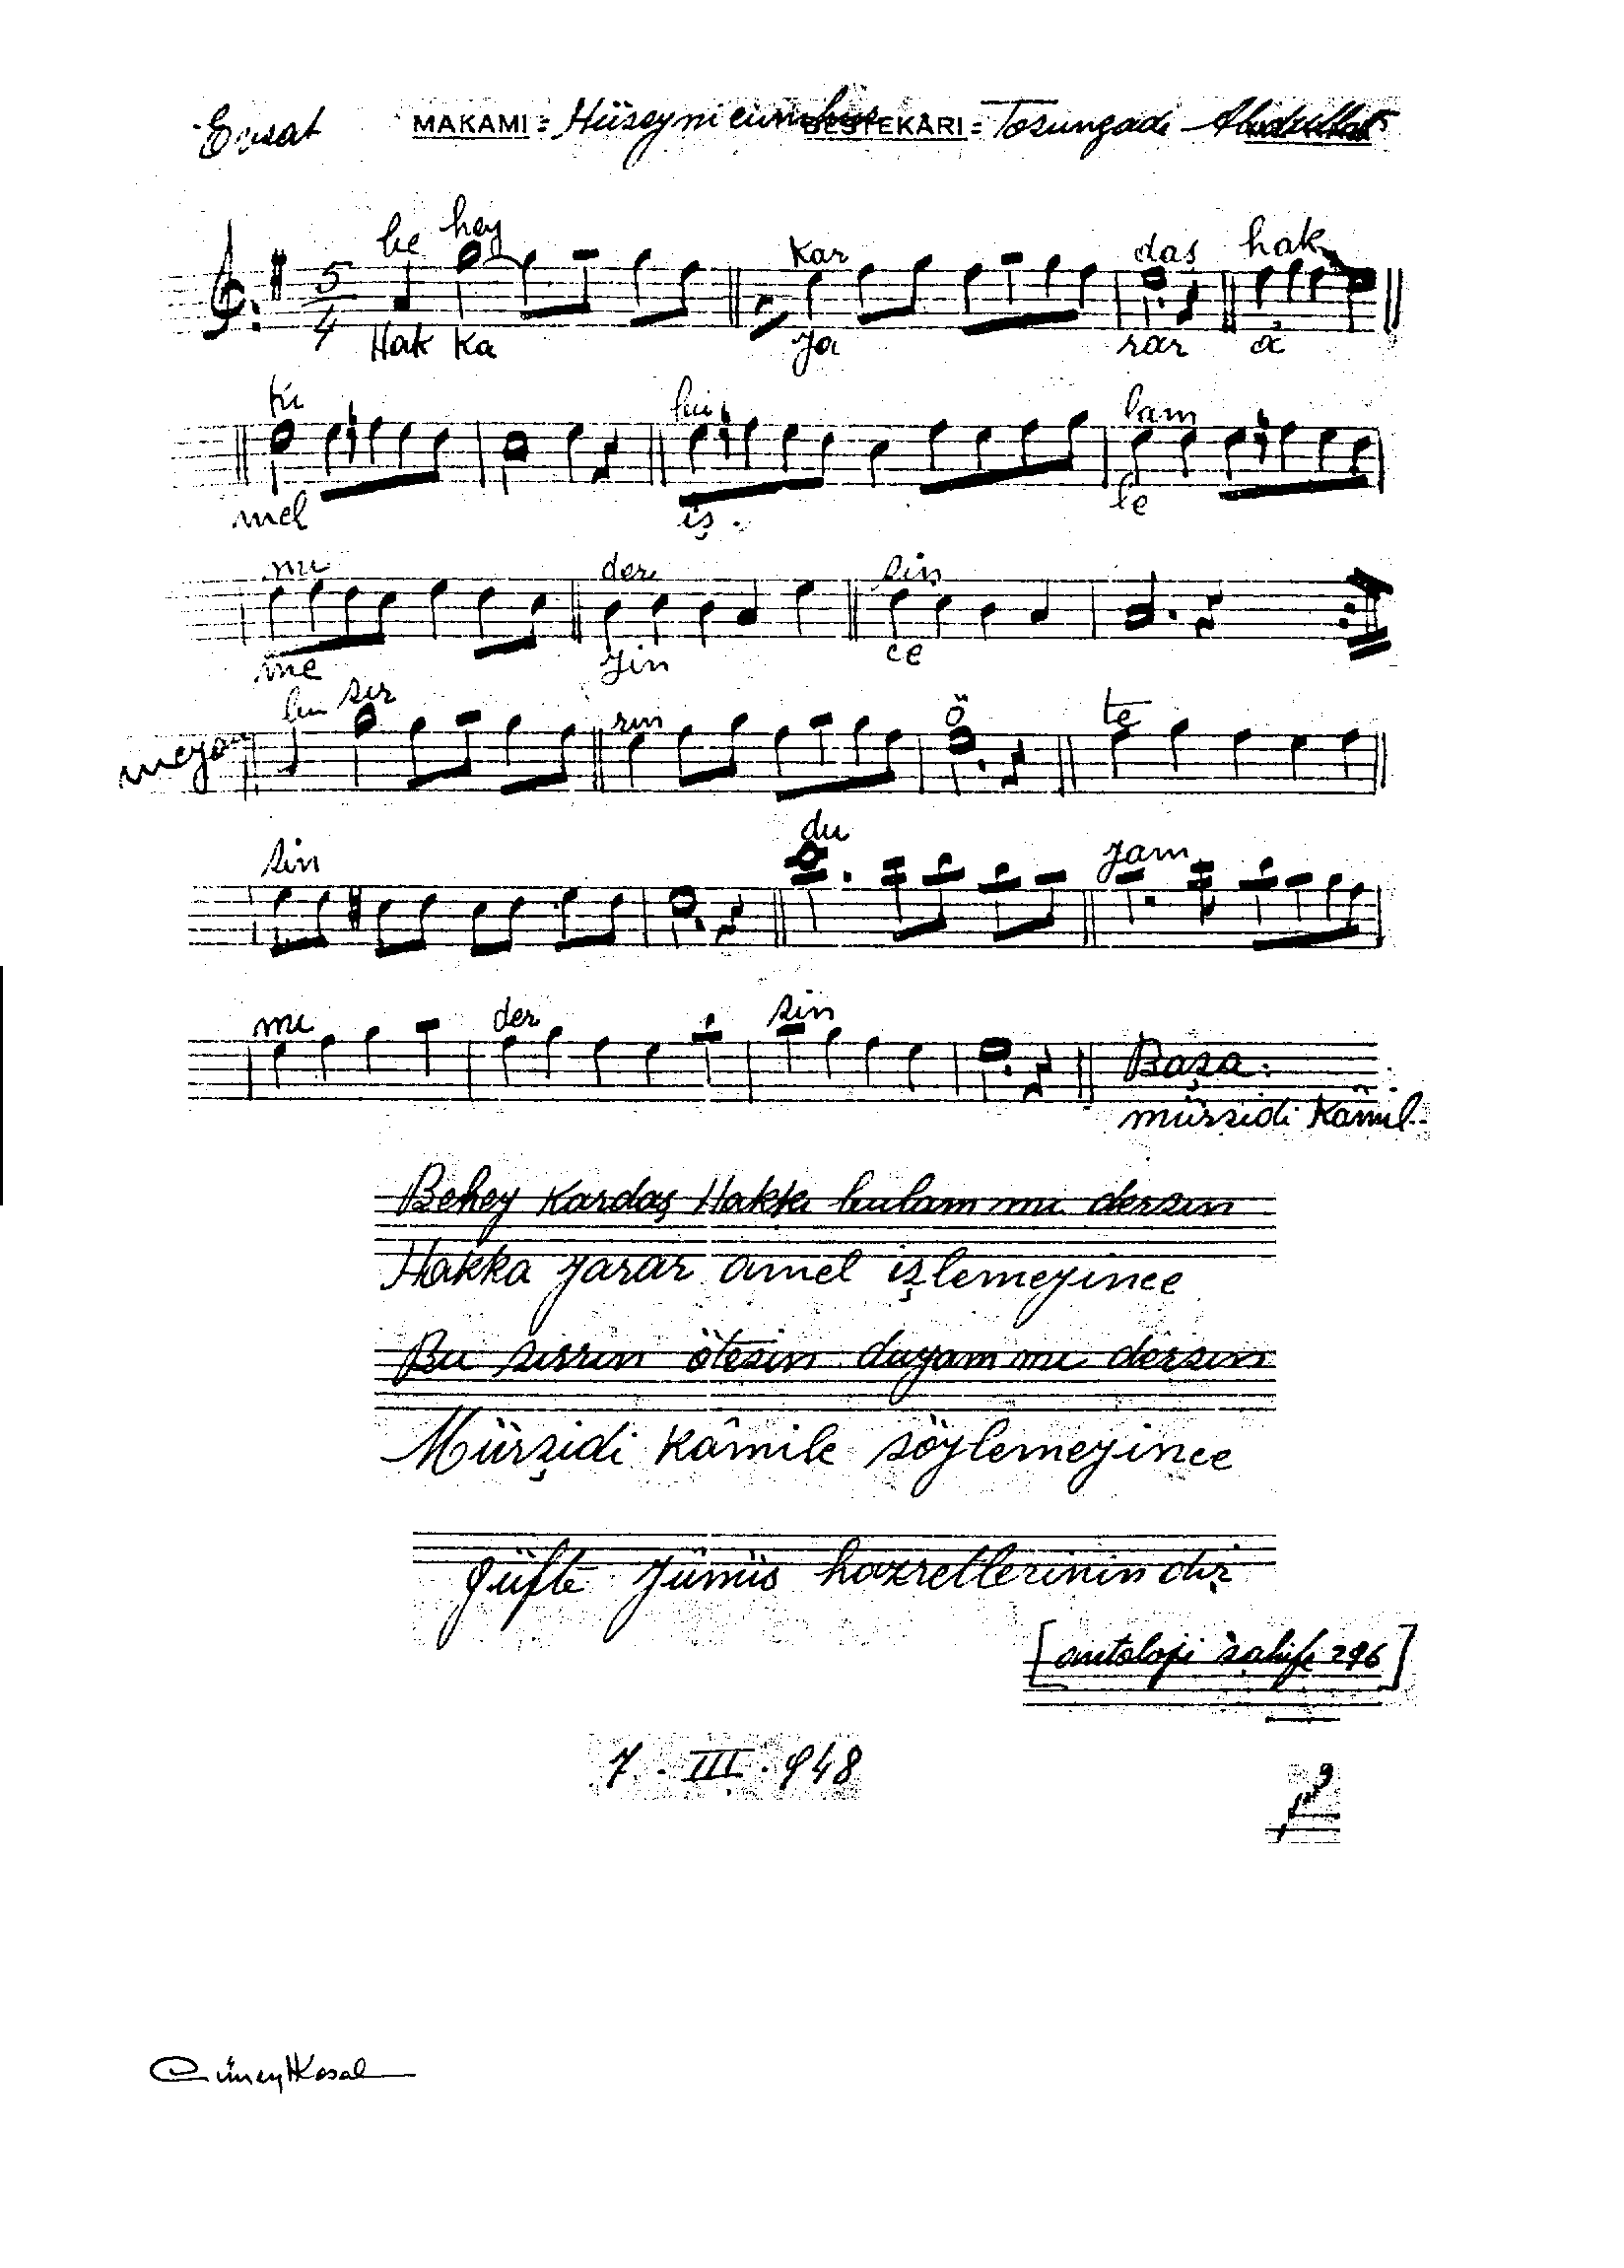 MAKAMI = Hüseyni BESTEKÂRI = Tosunzade Abdullah
5
4
be hey kar daş hak
Hak ka ya rar a
kı bu lam
mel iş le
mı der sin
me yin ce
meyan bu sır rın ö te
sin du yam
mı der sin Başa:
mürşidi Kâmil
Behey Kardaş Hakkı bulam mı dersin
Hakka yarar amel işlemeyince
Bu sırrın ötesin duyam mı dersin
Mürşidi kâmile söylemeyince
güfte Yûnüs hazretlerinindir
[antoloji sahife 296]
7 . III . 948
Cüneyd Kosal